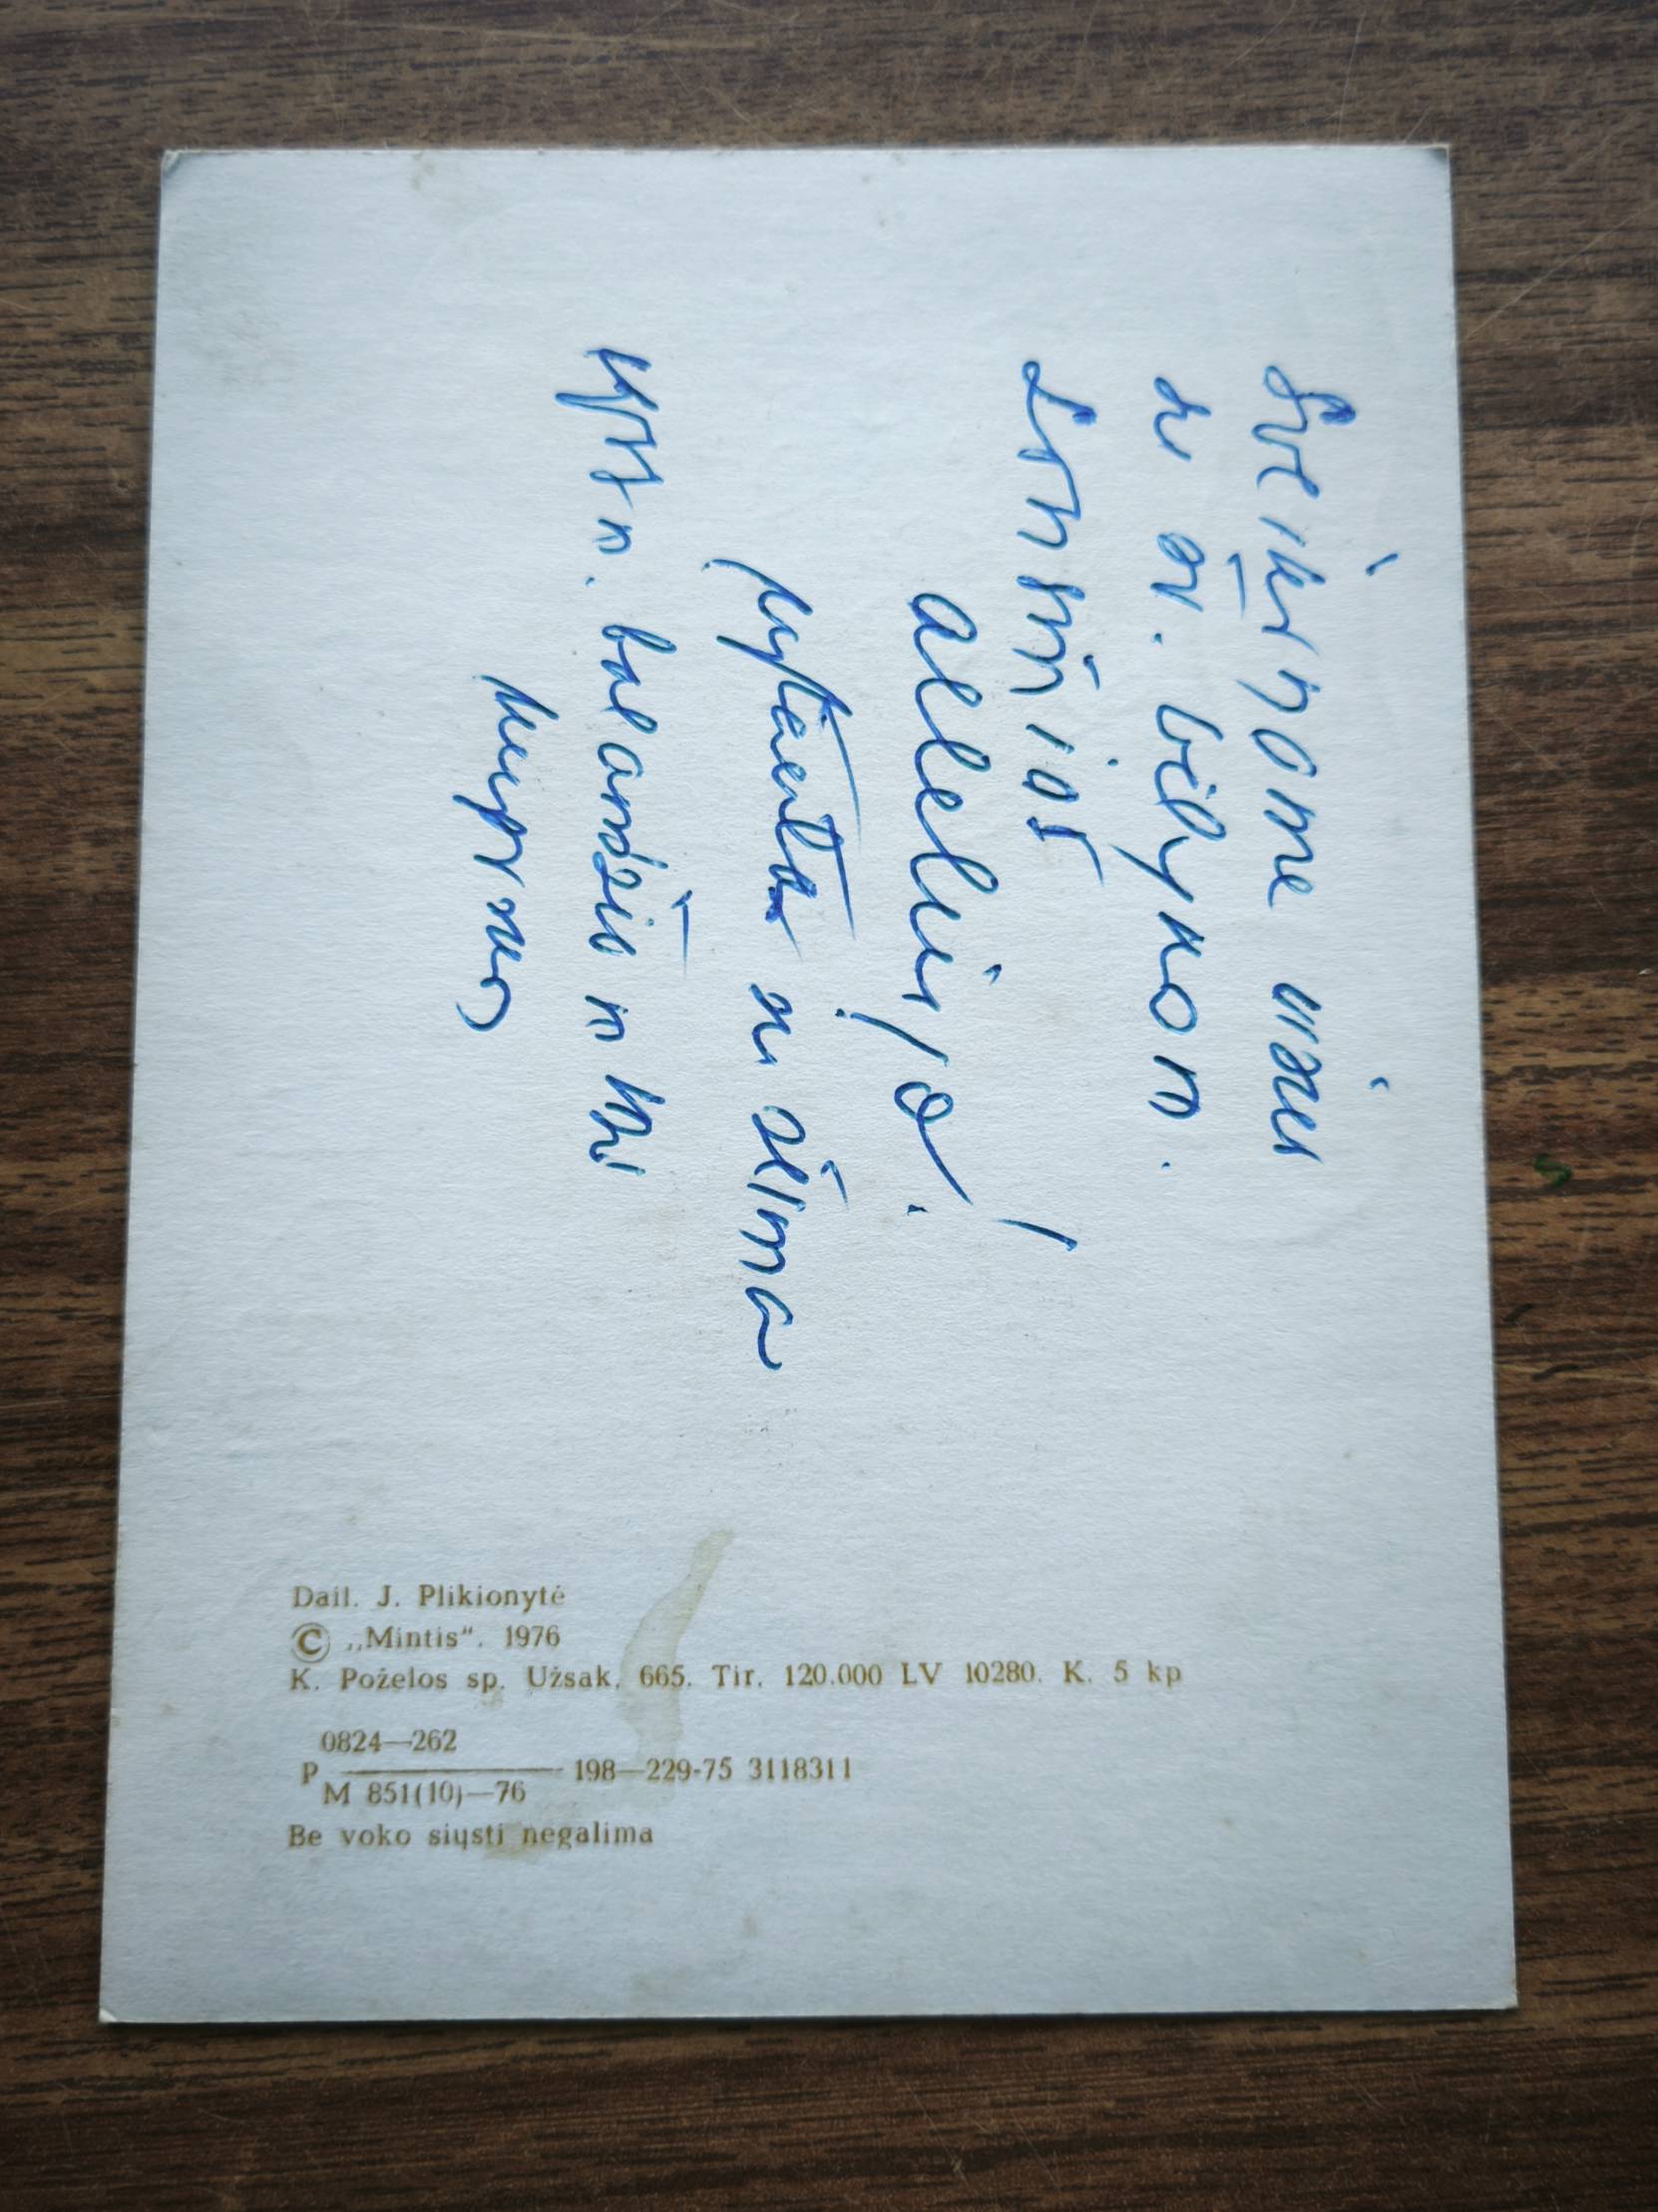 Sveikiname visus
su šv. Velykom.
Linksmios
aleliuja!
Vytautas su šeima
m. balandžio m
Dail. J. Plikionytė
© „Mintis“. 1976
K. Poželos sp. Užsak. 665. Tir. 120.000 LV 10280. K. 5 kp
P 0824—262
M 851(10)—76 198—229-75 3118311
Be voko siųsti negalima